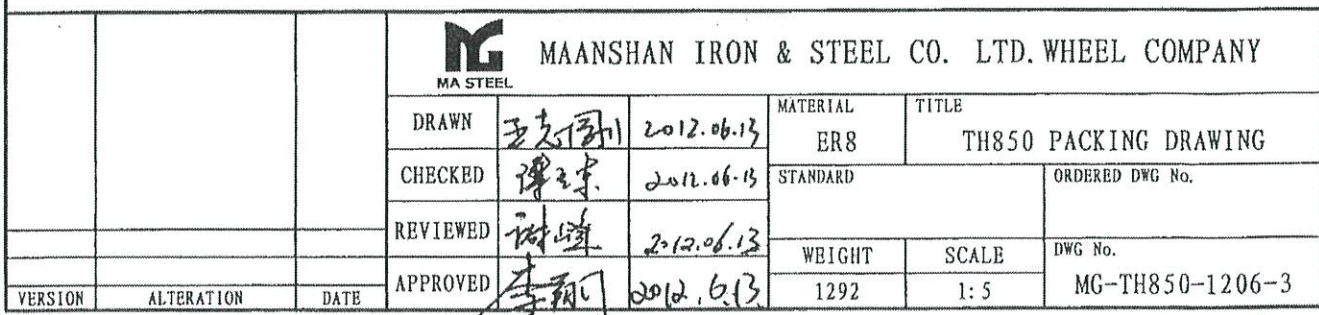 MA STEEL
MAANSHAN IRON & STEEL CO. LTD. WHEEL COMPANY
DRAWN 2012.06.13
CHECKED 2012.06.13
REVIEWED 2012.06.13
APPROVED 2012.6.13
MATERIAL
ER8
TITLE
TH850 PACKING DRAWING
STANDARD
ORDERED DWG No.
WEIGHT
1292
SCALE
1:5
DWG No.
MG-TH850-1206-3
VERSION ALTERATION DATE